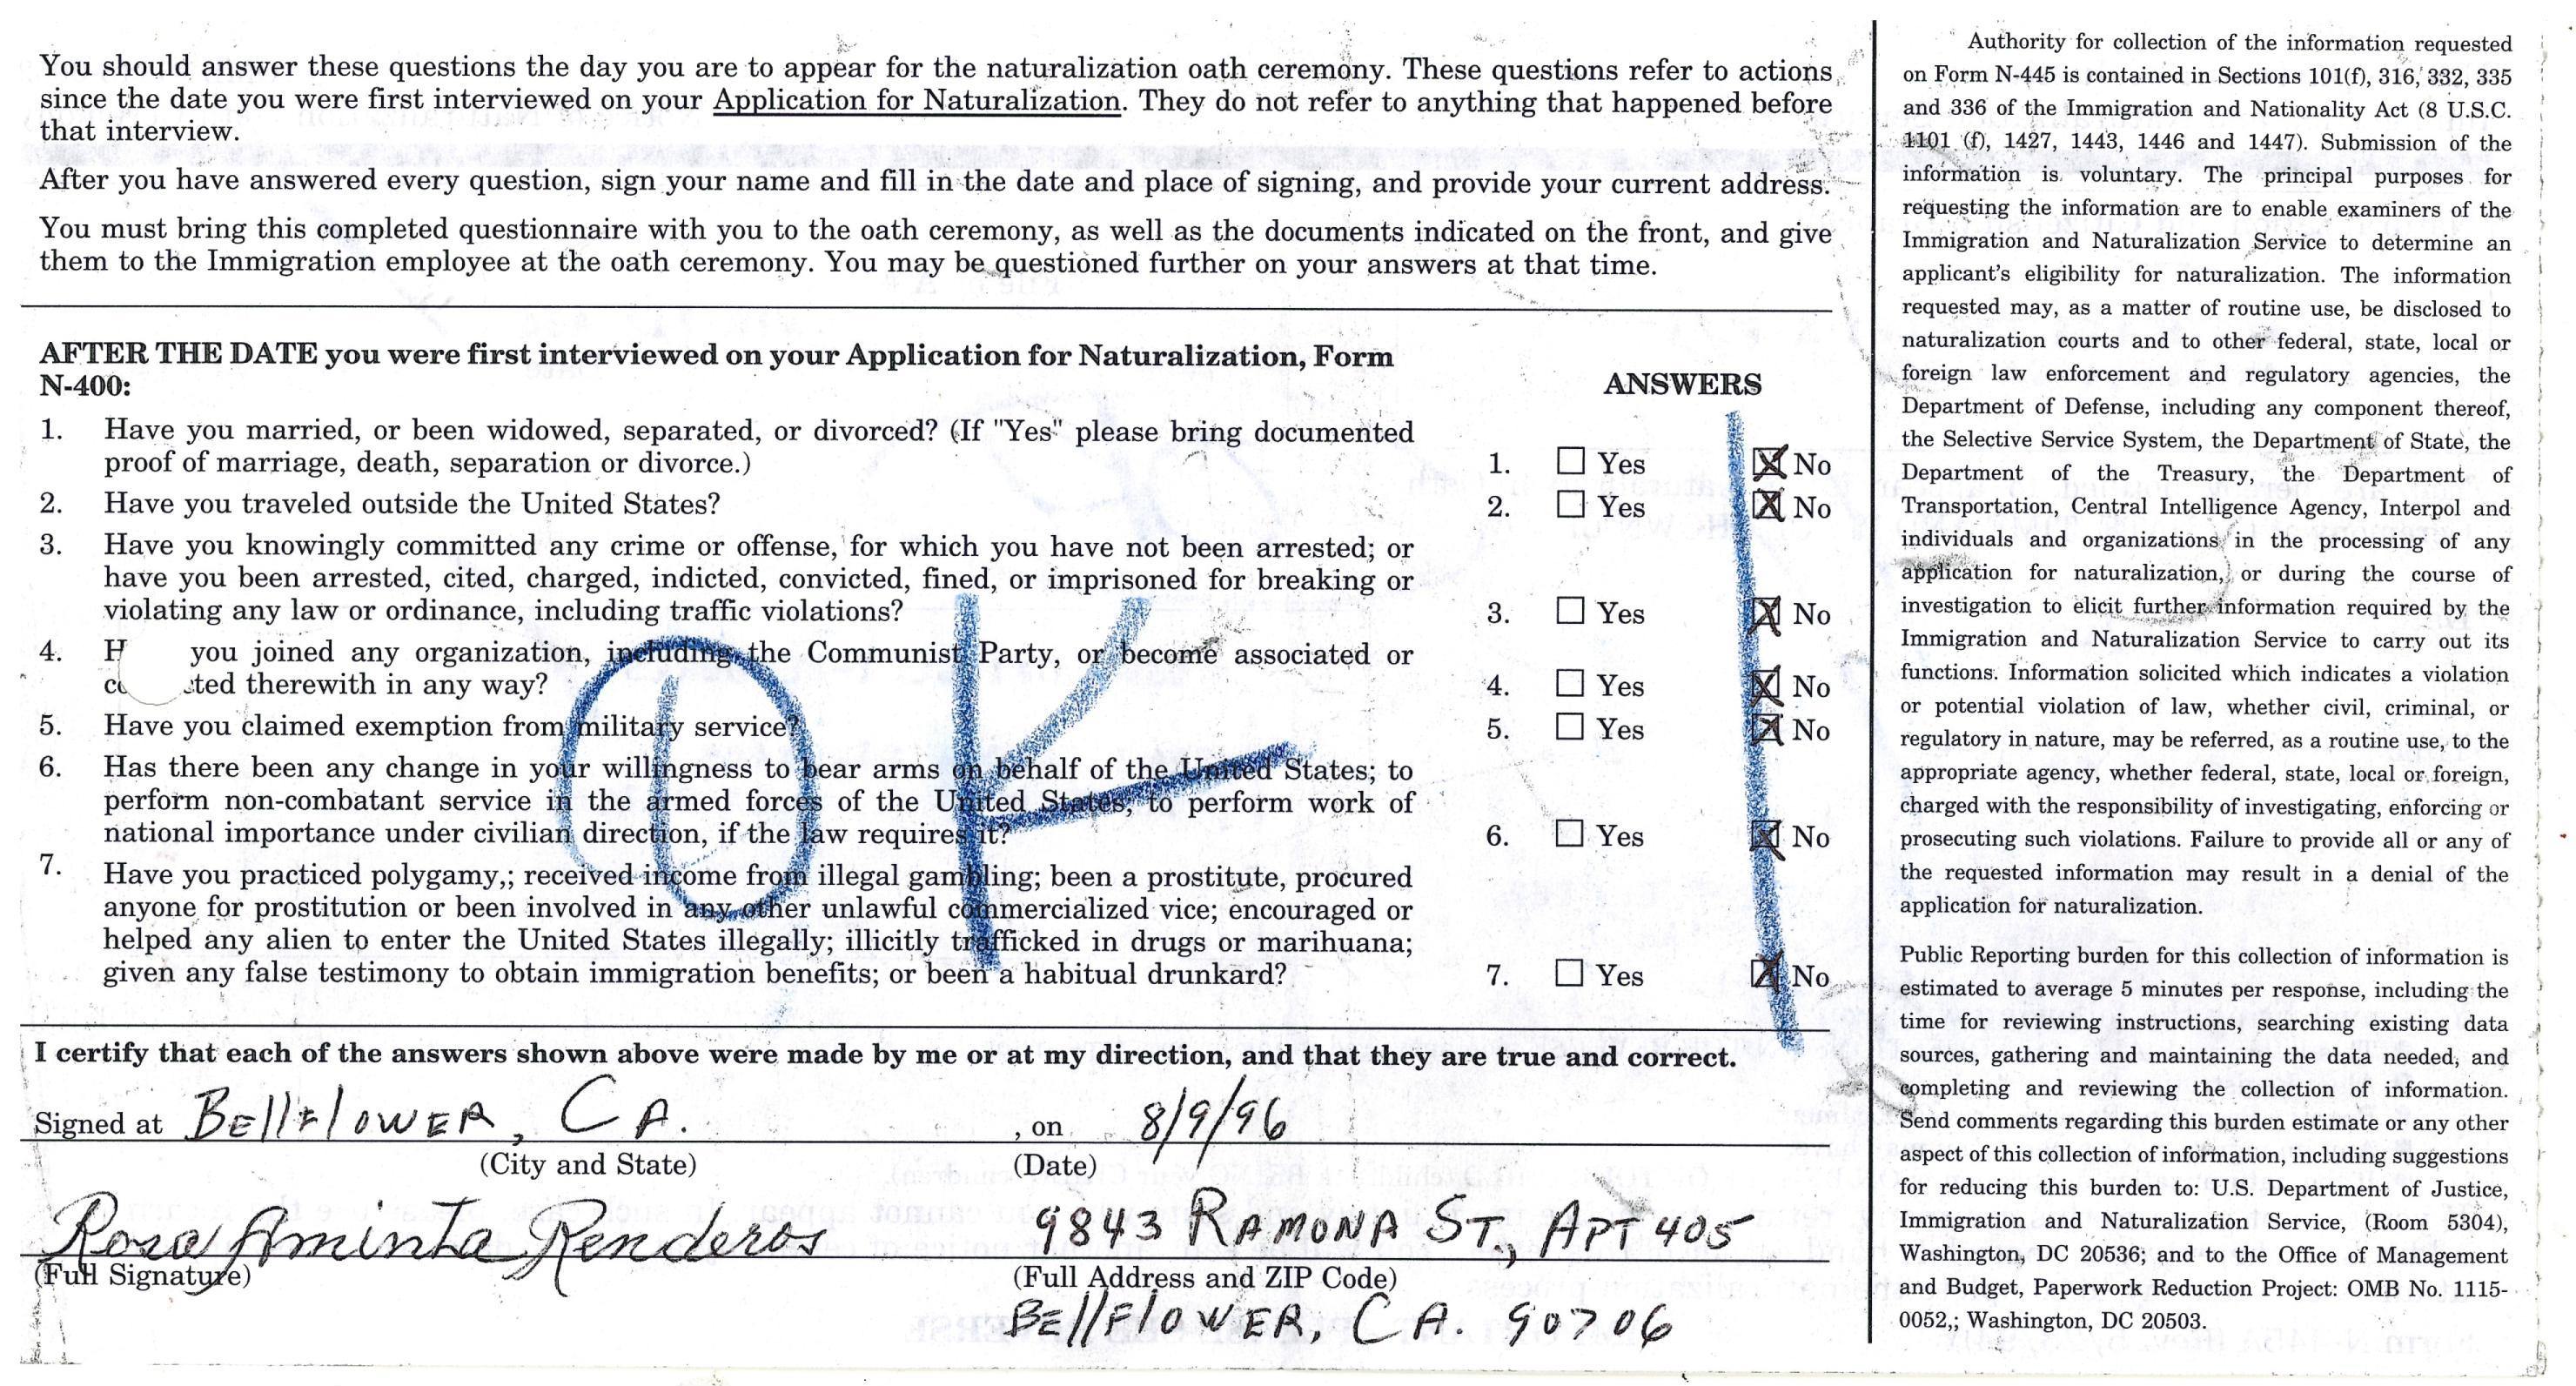 You should answer these questions the day you are to appear for the naturalization oath ceremony. These questions refer to actions
since the date you were first interviewed on your Application for Naturalization. They do not refer to anything that happened before
that interview.
After you have answered every question, sign your name and fill in the date and place of signing, and provide your current address.
You must bring this completed questionnaire with you to the oath ceremony, as well as the documents indicated on the front, and give
them to the Immigration employee at the oath ceremony. You may be questioned further on your answers at that time.
AFTER THE DATE you were first interviewed on your Application for Naturalization, Form
N-400:
ANSWERS
1. Have you married, or been widowed, separated, or divorced? (If "Yes" please bring documented
proof of marriage, death, separation or divorce.)
1. ☐ Yes ☒ No
2. Have you traveled outside the United States?
2. ☐ Yes ☒ No
3. Have you knowingly committed any crime or offense, for which you have not been arrested; or
have you been arrested, cited, charged, indicted, convicted, fined, or imprisoned for breaking or
violating any law or ordinance, including traffic violations?
3. ☐ Yes ☒ No
4. H you joined any organization, including the Communist Party, or become associated or
co ted therewith in any way?
4. ☐ Yes ☒ No
5. Have you claimed exemption from military service?
5. ☐ Yes ☒ No
6. Has there been any change in your willingness to bear arms on behalf of the United States; to
perform non-combatant service in the armed forces of the United States; to perform work of
national importance under civilian direction, if the law requires it?
6. ☐ Yes ☒ No
7. Have you practiced polygamy,; received income from illegal gambling; been a prostitute, procured
anyone for prostitution or been involved in any other unlawful commercialized vice; encouraged or
helped any alien to enter the United States illegally; illicitly trafficked in drugs or marihuana;
given any false testimony to obtain immigration benefits; or been a habitual drunkard?
7. ☐ Yes ☒ No
OK
I certify that each of the answers shown above were made by me or at my direction, and that they are true and correct.
Signed at BEllFlOWER, CA. , on 8/9/96
(City and State) (Date)
Rosa Aminta Renderos 9843 RAMONA ST., APT 405
(Full Signature) (Full Address and ZIP Code)
BEllFlOWER, CA. 90706
Authority for collection of the information requested
on Form N-445 is contained in Sections 101(f), 316, 332, 335
and 336 of the Immigration and Nationality Act (8 U.S.C.
1101 (f), 1427, 1443, 1446 and 1447). Submission of the
information is voluntary. The principal purposes for
requesting the information are to enable examiners of the
Immigration and Naturalization Service to determine an
applicant's eligibility for naturalization. The information
requested may, as a matter of routine use, be disclosed to
naturalization courts and to other federal, state, local or
foreign law enforcement and regulatory agencies, the
Department of Defense, including any component thereof,
the Selective Service System, the Department of State, the
Department of the Treasury, the Department of
Transportation, Central Intelligence Agency, Interpol and
individuals and organizations in the processing of any
application for naturalization, or during the course of
investigation to elicit further information required by the
Immigration and Naturalization Service to carry out its
functions. Information solicited which indicates a violation
or potential violation of law, whether civil, criminal, or
regulatory in nature, may be referred, as a routine use, to the
appropriate agency, whether federal, state, local or foreign,
charged with the responsibility of investigating, enforcing or
prosecuting such violations. Failure to provide all or any of
the requested information may result in a denial of the
application for naturalization.
Public Reporting burden for this collection of information is
estimated to average 5 minutes per response, including the
time for reviewing instructions, searching existing data
sources, gathering and maintaining the data needed, and
completing and reviewing the collection of information.
Send comments regarding this burden estimate or any other
aspect of this collection of information, including suggestions
for reducing this burden to: U.S. Department of Justice,
Immigration and Naturalization Service, (Room 5304),
Washington, DC 20536; and to the Office of Management
and Budget, Paperwork Reduction Project: OMB No. 1115-
0052,; Washington, DC 20503.